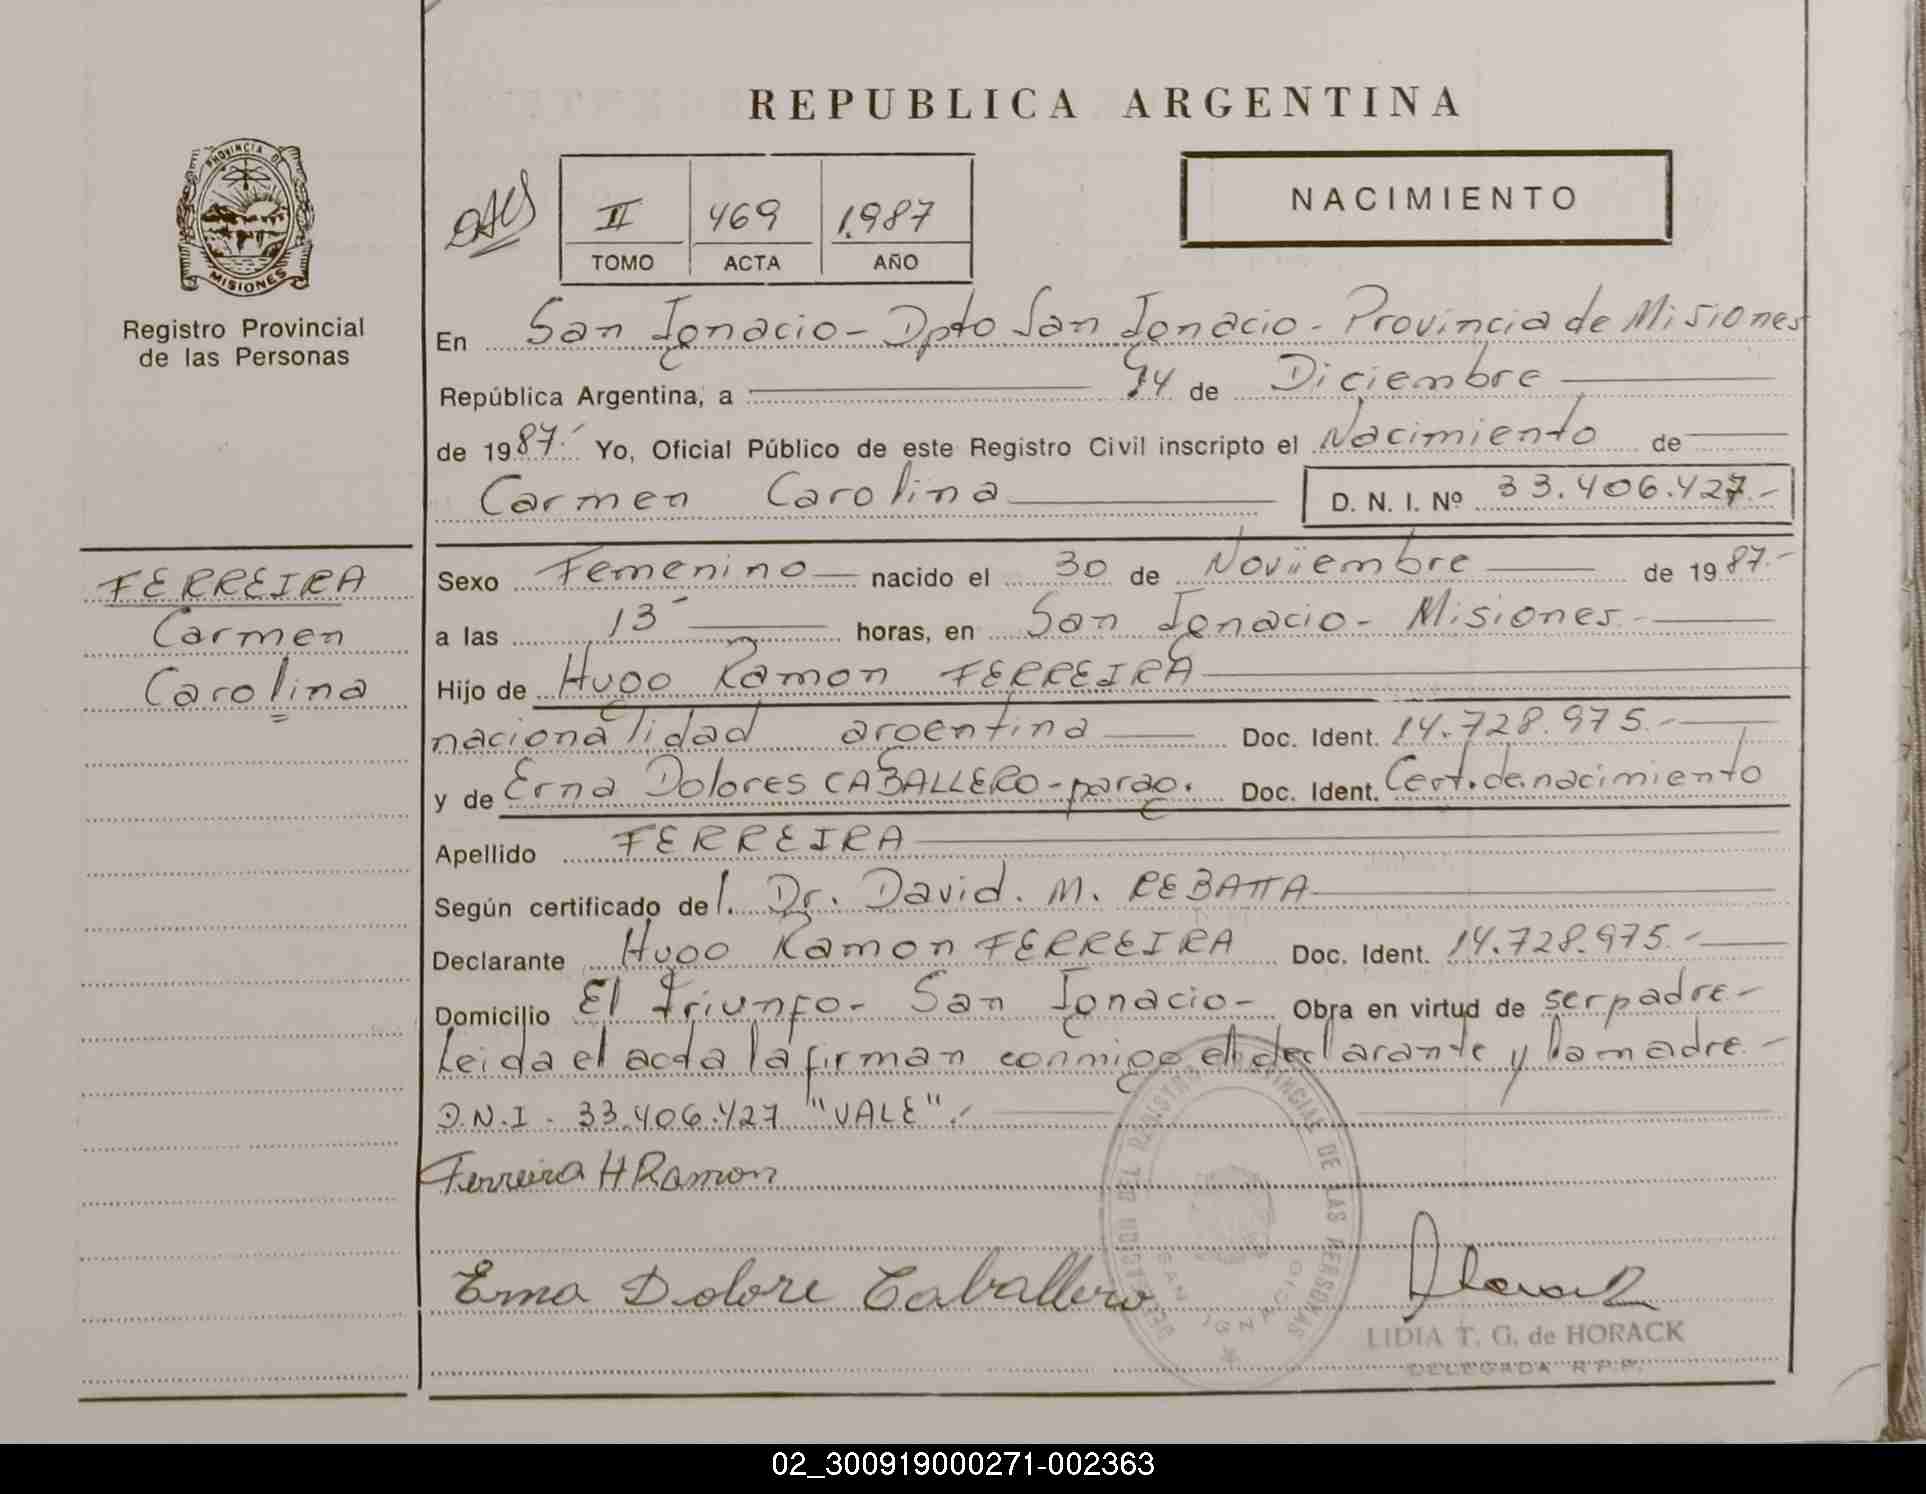 REPUBLICA ARGENTINA
PROVINCIA DE
MISIONES
Registro Provincial
de las Personas
II 469 1.987
TOMO ACTA AÑO
NACIMIENTO
En San Ignacio - Dpto San Ignacio - Provincia de Misiones
República Argentina, a 14 de Diciembre
de 1987.- Yo, Oficial Público de este Registro Civil inscripto el Nacimiento de
Carmen Carolina D. N. I. Nº 33.406.427.-
FERREIRA
Carmen
Carolina
Sexo Femenino nacido el 30 de Noviembre de 1987.-
a las 13 horas, en San Ignacio - Misiones.-
Hijo de Hugo Ramon FERREIRA
nacionalidad argentina Doc. Ident. 14.728.975.-
y de Erna Dolores CABALLERO - parag. Doc. Ident. Cert. de nacimiento
Apellido FERREIRA
Según certificado del. Dr. David. M. REBATTA
Declarante Hugo Ramon FERREIRA Doc. Ident. 14.728.975.-
Domicilio El Triunfo - San Ignacio - Obra en virtud de ser padre.-
Leida el acta la firman conmigo el declarante y la madre.-
D.N.I. 33.406.427 "VALE".-
Ferreira H Ramon
Erna Dolore Caballero
DELEGACION DEL REGISTRO PROVINCIAL DE LAS PERSONAS
SAN IGNACIO
LIDIA T. G. de HORACK
DELEGADA R.P.P.
02_300919000271-002363